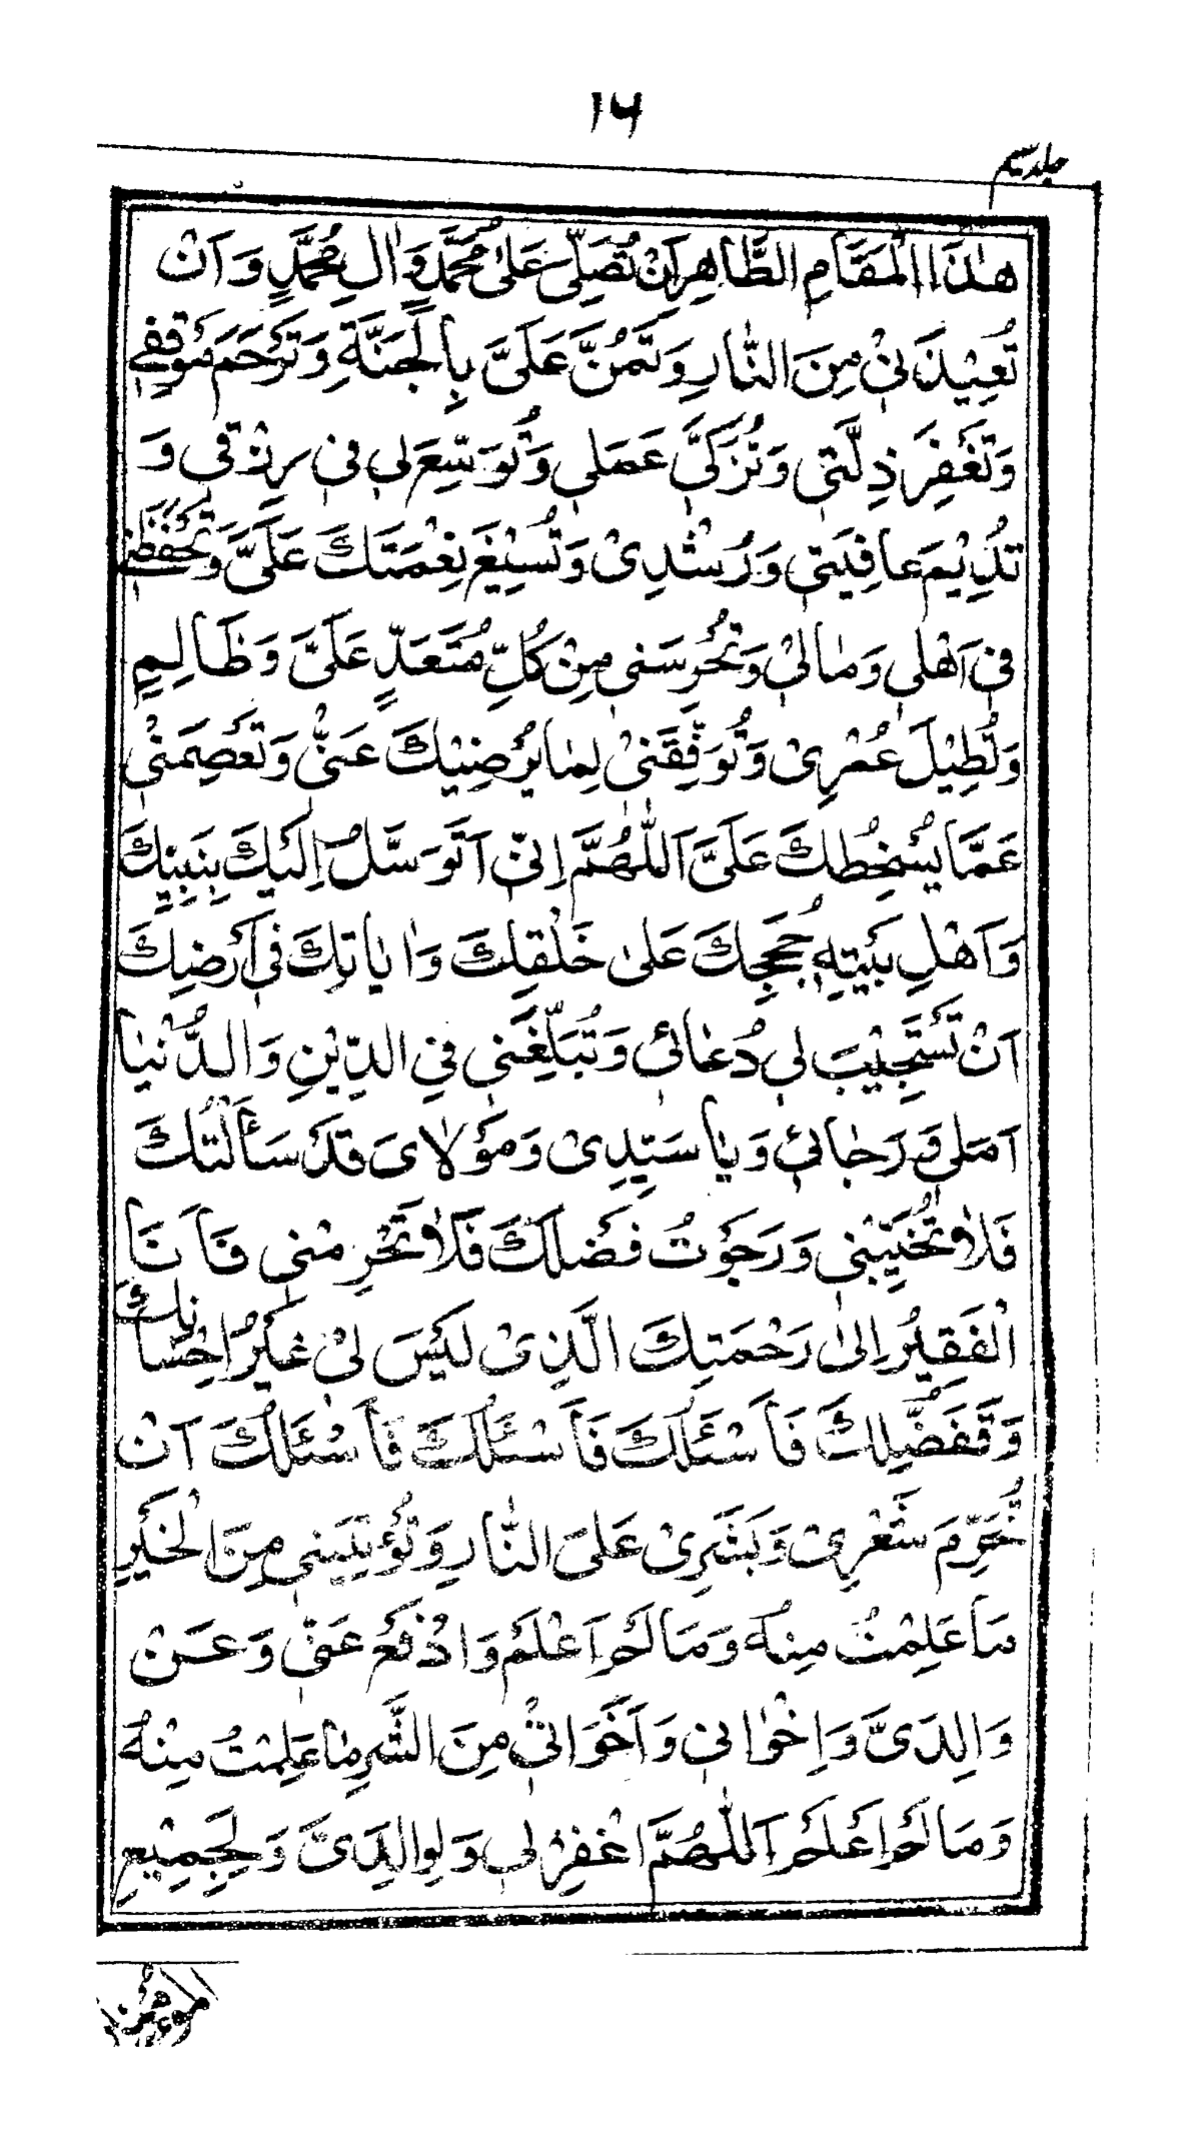 ۱۶
جلد سیم
هٰذَا الْمَقَامِ الطَّاهِرِ اَنْ تُصَلِّیَ عَلیٰ مُحَمَّدٍ وَاٰلِ مُحَمَّدٍ وَ اَنْ
تُعِیْذَنیْ مِنَ النّٰارِ وَ تَمُنَّ عَلَیَّ بِالْجَنَّةِ وَ تَرْحَمَ مَوْقِفی
وَ تَغْفِرَ ذِلَّتی وَ تُزَکَّیَ عَمَلی وَ تُوَسِّعَ لی فی رِزْقی وَ
تُدِیْمَ عافِیَتی وَ رُشْدِیْ وَ تُسْبِغَ نِعْمَتَكَ عَلَیَّ وَ تَحْفَظَنی
فی اَهْلی وَ مٰالیْ وَ تَحْرُسَنی مِنْ کُلِّ مُتَعَدٍّ عَلَیَّ وَ ظَالِمٍ
وَ تُطِیْلَ عُمْرِیْ وَ تُوَفِّقَنیْ لِمٰا یُرْضِیْكَ عَنّیْ وَ تَعْصِمَنیْ
عَمَّا یُسْخِطُكَ عَلَیَّ اَللّٰهُمَّ اِنّی اَتَوَسَّلُ اِلَیْكَ بِنَبِیِّكَ
وَ اَهْلِ بَیْتِهٖ حُجَجِكَ عَلیٰ خَلْقِكَ وَ اٰیٰاتِكَ فی اَرْضِكَ
اَنْ تَسْتَجِیْبَ لی دُعٰائی وَ تُبَلِّغَنی فِی الدِّیْنِ وَ الدُّنْیٰا
اَمَلی وَ رَجٰائی وَ یٰا سَیِّدِیْ وَ مَوْلاٰیَ قَدْ سَأَلْتُكَ
فَلاٰ تُخَیِّبْنی وَ رَجَوْتُ فَضْلَكَ فَلاٰ تَحْرِمْنی فَاَنَا
الْفَقِیْرُ اِلیٰ رَحْمَتِكَ الَّذِیْ لَیْسَ لیْ غَیْرُ اِحْسٰانِكَ
وَ تَفَضُّلِكَ فَأَسْئَلُكَ فَأَسْئَلُكَ فَأَسْئَلُكَ اَنْ
تُحَرِّمَ شَعْرِیْ وَ بَشَرِیْ عَلَی النّٰارِ وَ تُؤْتِیَنی مِنَ الْخَیْرِ
مَا عَلِمْتُ مِنْهُ وَ مَا لَمْ اَعْلَمْ وَ ادْفَعْ عَنّی وَ عَنْ
وَالِدَیَّ وَ اِخْوٰانی وَ اَخَوَاتیْ مِنَ الشَّرِ مٰا عَلِمْتُ مِنْهُ
وَ مَا لَمْ اَعْلَمْ اَللّٰهُمَّ اغْفِرْ لی وَ لِوالِدَیَّ وَ لِجَمِیْعِ